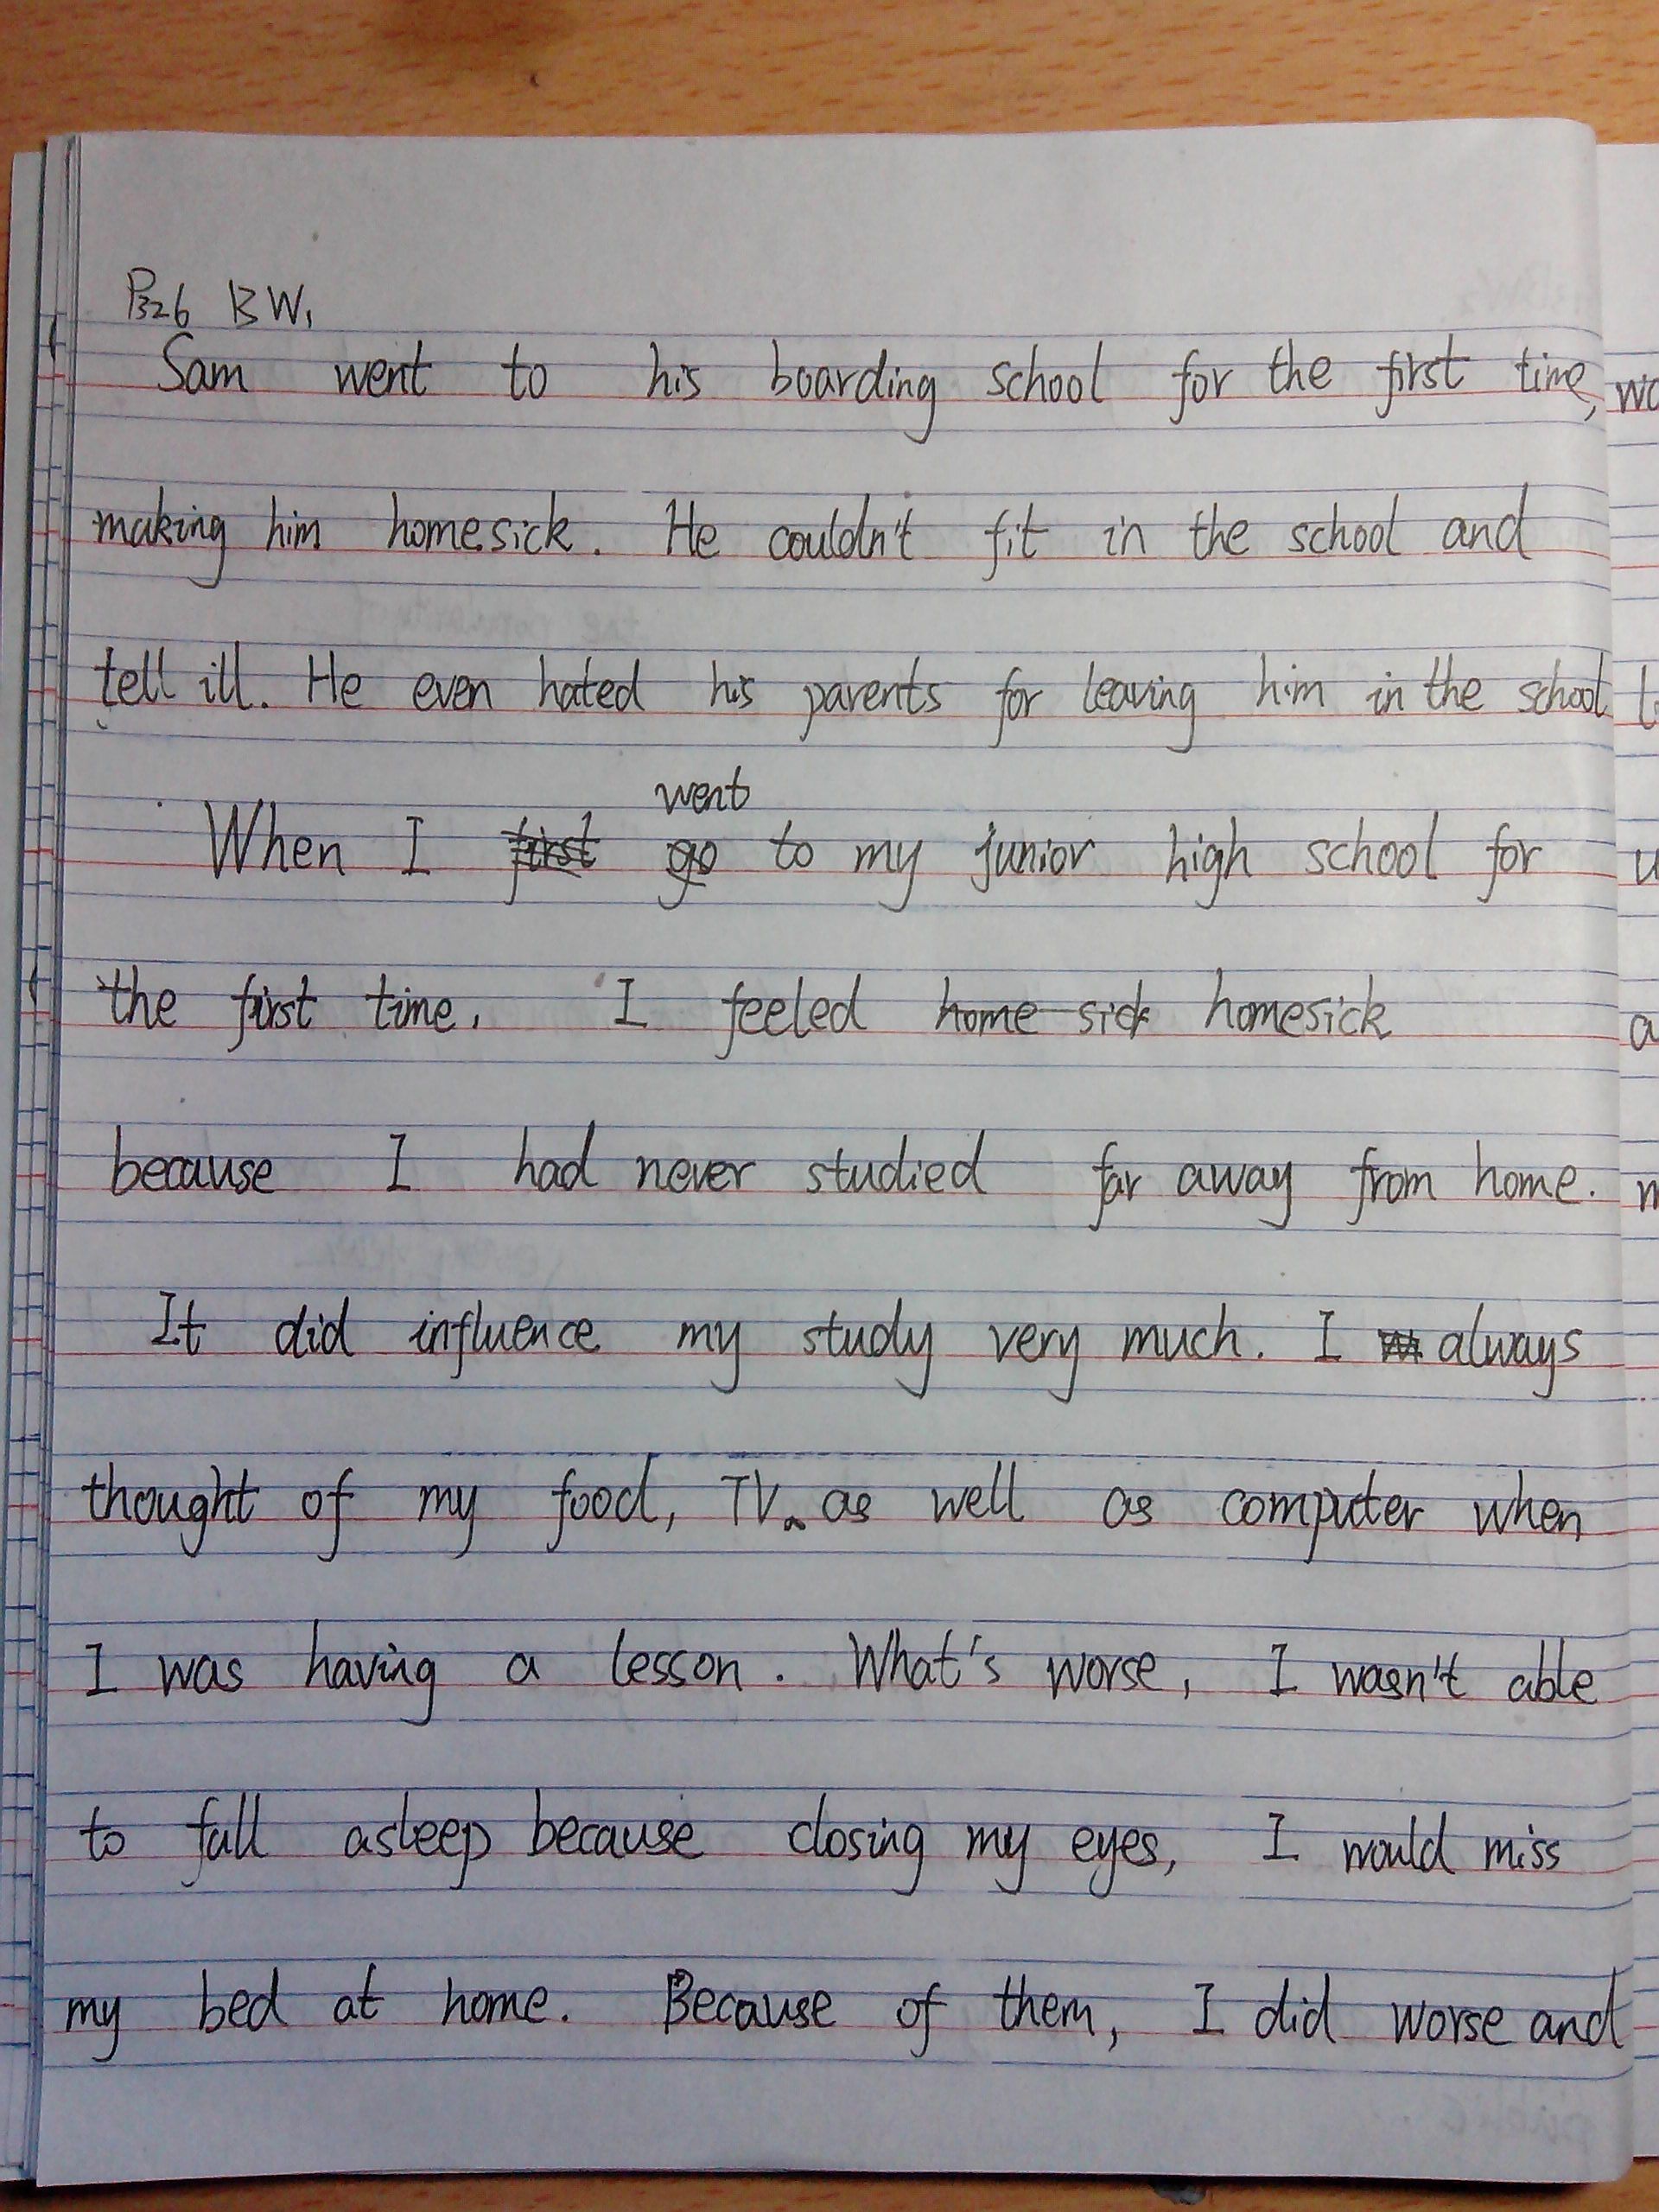 P326 BW1
Sam went to his boarding school for the first time,
making him homesick. He couldn't fit in the school and
tell ill. He even hated his parents for leaving him in the school
went
When I first go to my junior high school for
the first time, I feeled home sick homesick
because I had never studied far away from home.
It did influence my study very much. I always
thought of my food, TV as well as computer when
I was having a lesson. What's worse, I wasn't able
to fall asleep because closing my eyes, I would miss
my bed at home. Because of them, I did worse and